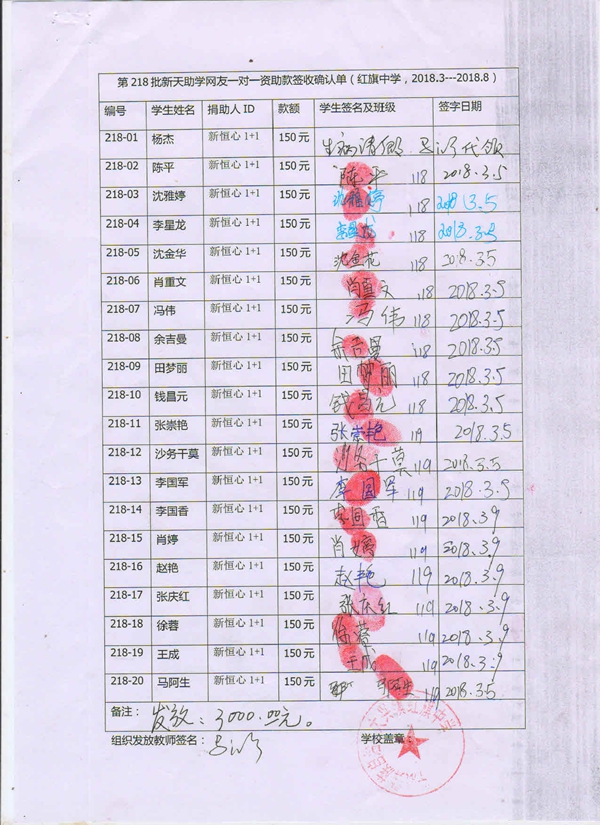 第 218 批新天助学网友一对一资助款签收确认单（红旗中学，2018.3---2018.8）
编号 学生姓名 捐助人 ID 款额 学生签名及班级 签字日期
218-01 杨杰 新恒心 1+1 150 元 生病请假 代领
218-02 陈平 新恒心 1+1 150 元 陈平 118 2018.3.5
218-03 沈雅婷 新恒心 1+1 150 元 沈雅婷 118 2018.3.5
218-04 李星龙 新恒心 1+1 150 元 李星龙 118 2018.3.5
218-05 沈金华 新恒心 1+1 150 元 沈金花 118 2018.3.5
218-06 肖重文 新恒心 1+1 150 元 肖重文 118 2018.3.5
218-07 冯伟 新恒心 1+1 150 元 冯伟 118 2018.3.5
218-08 余吉曼 新恒心 1+1 150 元 余吉曼 118 2018.3.5
218-09 田梦丽 新恒心 1+1 150 元 田梦丽 118 2018.3.5
218-10 钱昌元 新恒心 1+1 150 元 钱昌元 118 2018.3.5
218-11 张崇艳 新恒心 1+1 150 元 张崇艳 119 2018.3.5
218-12 沙务干莫 新恒心 1+1 150 元 沙务干莫 119 2018.3.5
218-13 李国军 新恒心 1+1 150 元 李国军 119 2018.3.9
218-14 李国香 新恒心 1+1 150 元 李国香 119 2018.3.9
218-15 肖婷 新恒心 1+1 150 元 肖婷 119 2018.3.9
218-16 赵艳 新恒心 1+1 150 元 赵艳 119 2018.3.9
218-17 张庆红 新恒心 1+1 150 元 张庆红 119 2018.3.9
218-18 徐蓉 新恒心 1+1 150 元 徐蓉 119 2018.3.9
218-19 王成 新恒心 1+1 150 元 王成 119 2018.3.9
218-20 马阿生 新恒心 1+1 150 元 马阿生 119 2018.3.5
备注： 发放：3000.00元。
组织发放教师签名： 学校盖章：
红旗中学